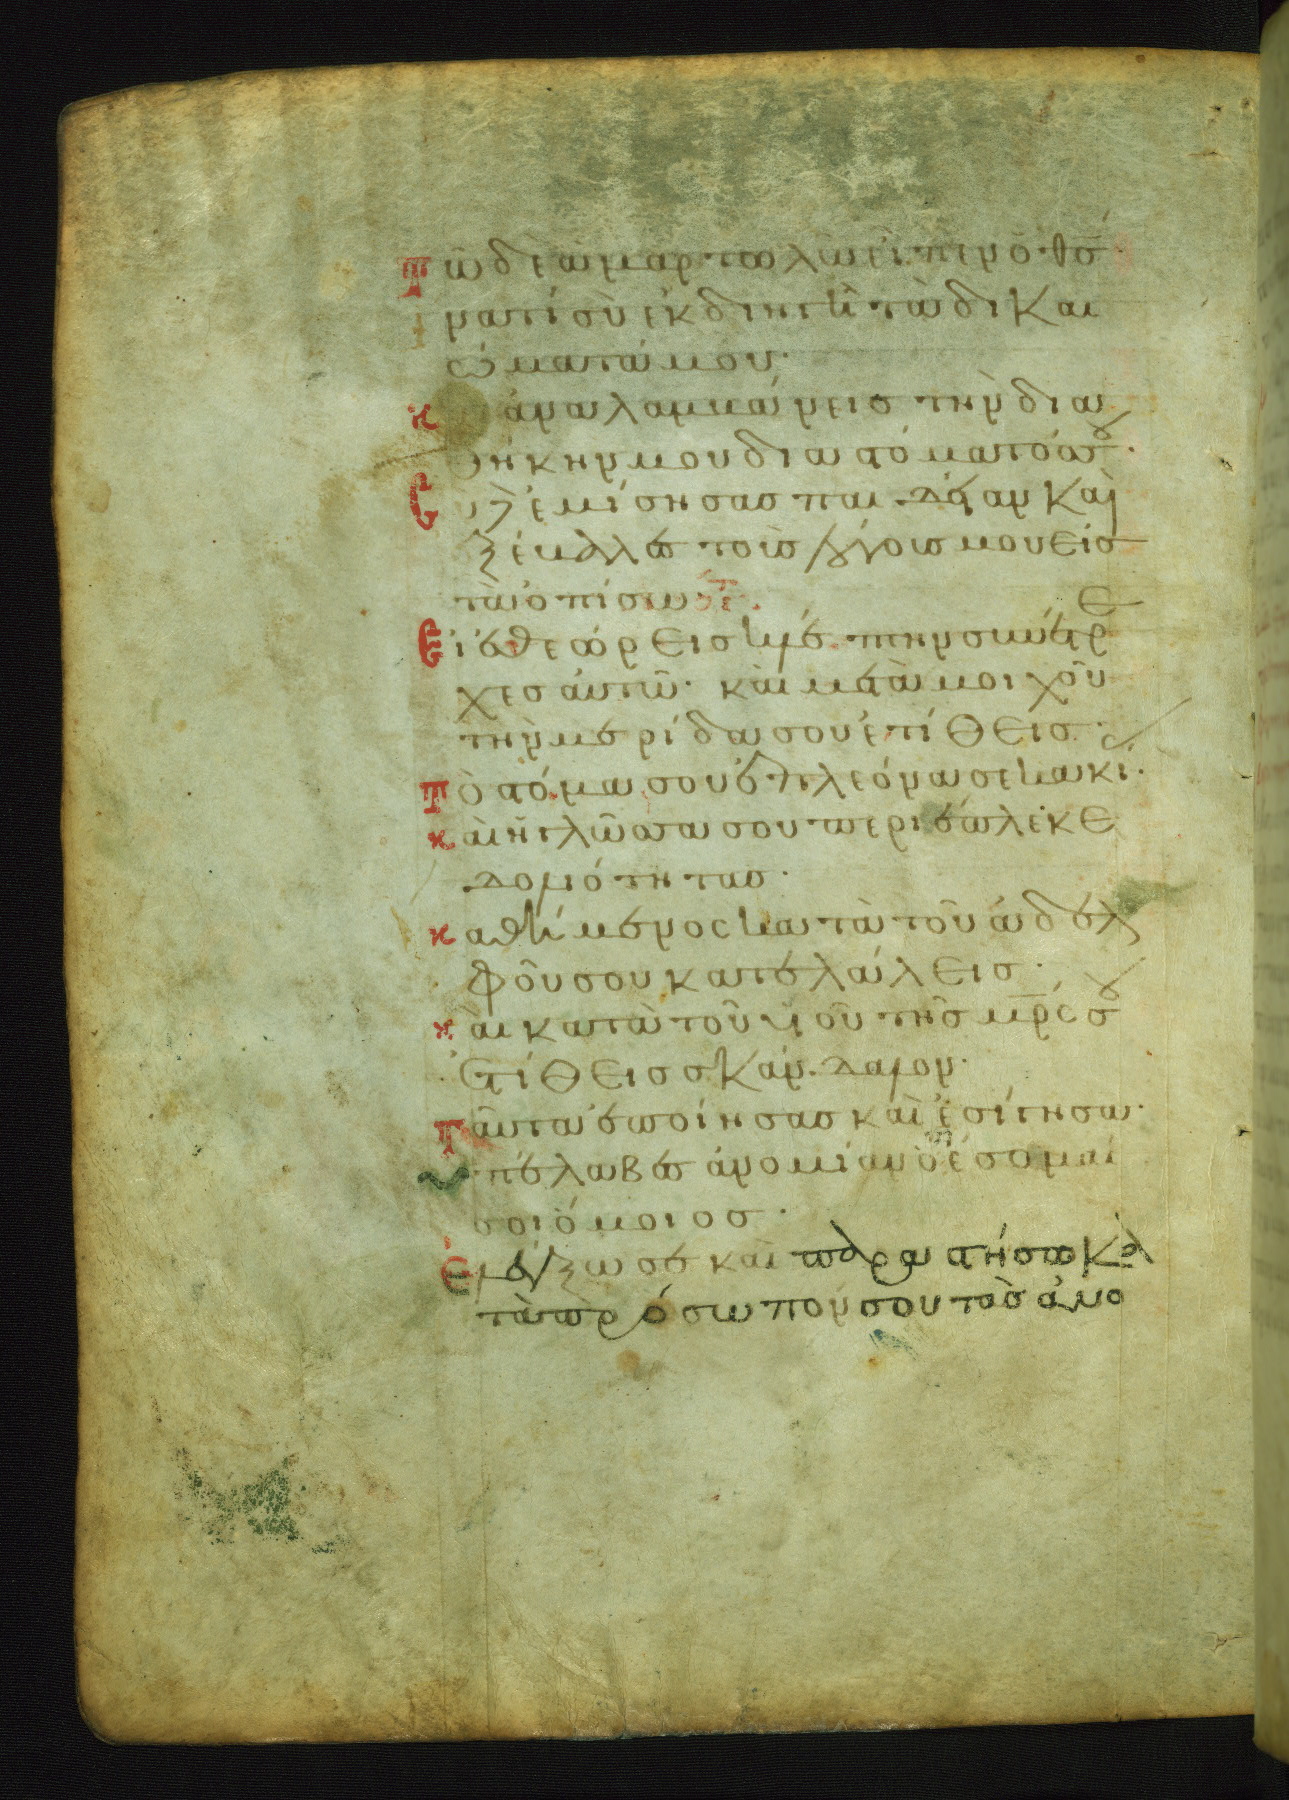 Τῶ δὲ ἁμαρτωλῶ εἶπεν ὁ θς
ἱνατί σὺ ἐκδιηγῆ τὰ δικαι
ώματά μου·
κ ἀναλαμβάνεις τὴν δια
θήκην μου διὰ στόματός σου·
Σὺ δὲ ἐμίσησας παιδείαν καὶ
ἐξέβαλες τοὺς λόγους μου εἰς
τὰ ὀπίσω·
Εἰ ἐθεώρεις κλέπτην συνέτρε
χες αὐτῶ· καὶ μετὰ μοιχοῦ
τὴν μερίδα σου ἐτίθεις·
Τὸ στόμα σου ἐπλεόνασε κακί·
καὶ ἡ γλῶσσα σου περιέπλεκε
δολιότητας·
καθήμενος κατὰ τοῦ ἀδελ
φοῦ σου κατελάλεις·
καὶ κατὰ τοῦ υἱοῦ τῆς μρς σου
ἐτίθεις σκάνδαλον·
Ταῦτα ἐποίησας καὶ ἐσίγησα·
ὑπέλαβες ἀνομίαν ὅτι ἔσομαί
σοι ὅμοιος·
Ἐλέγξω σε καὶ παραστήσω κα
τὰ πρόσωπόν σου τὰς ἁμα